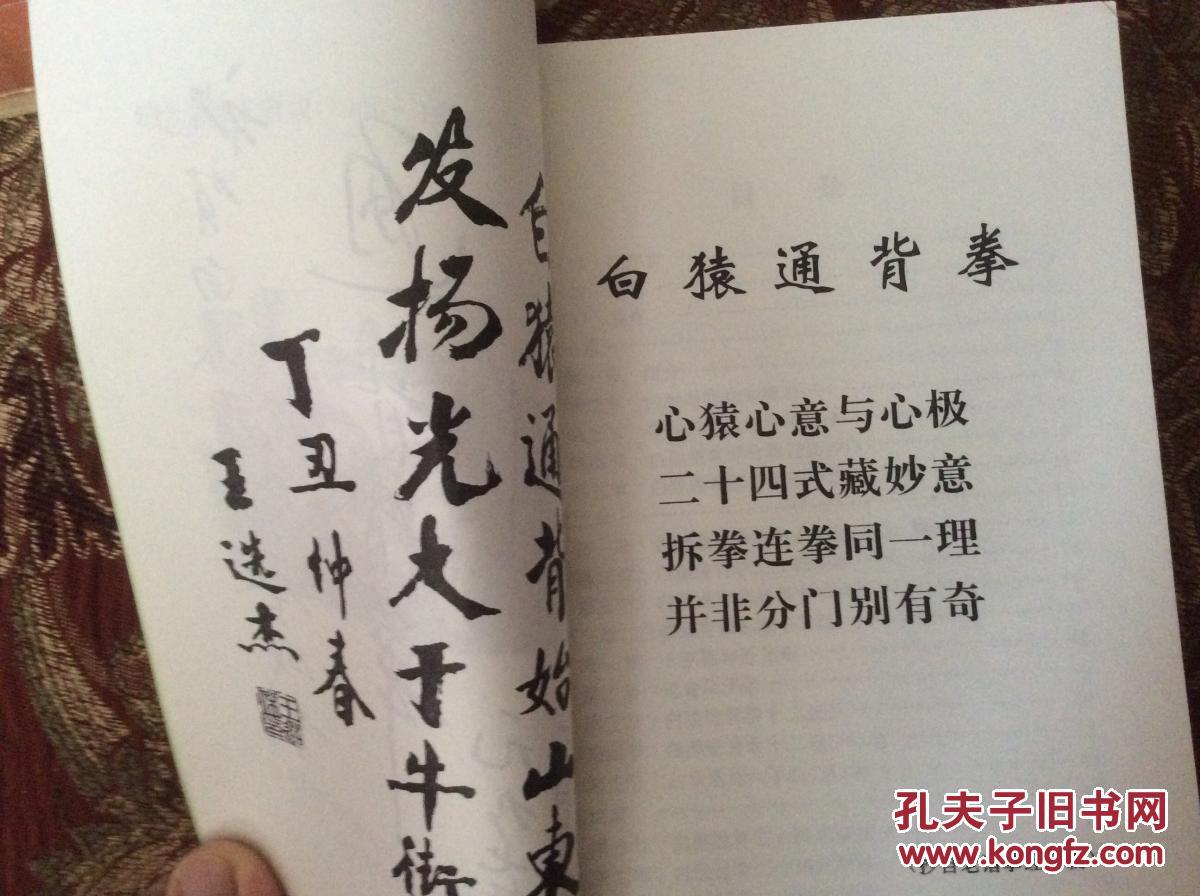 白猿通背始山東
发扬光大于牛街
丁丑仲春
王选杰
白猿通背拳
心猿心意与心极
二十四式藏妙意
拆拳连拳同一理
并非分门别有奇
孔夫子旧书网
www.kongfz.com